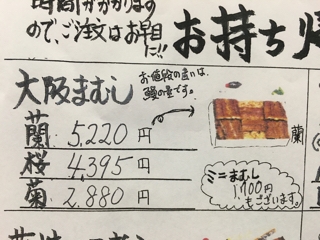 時間がかかりますの
で、ご注文はお早目
に!!
お持ち帰
大阪まむし
お値段の違いは、
鰻の量です。
蘭 5,220 円
桜 4,395 円
菊 2,880 円
蘭
ミニまむし
1,700円
もございます。